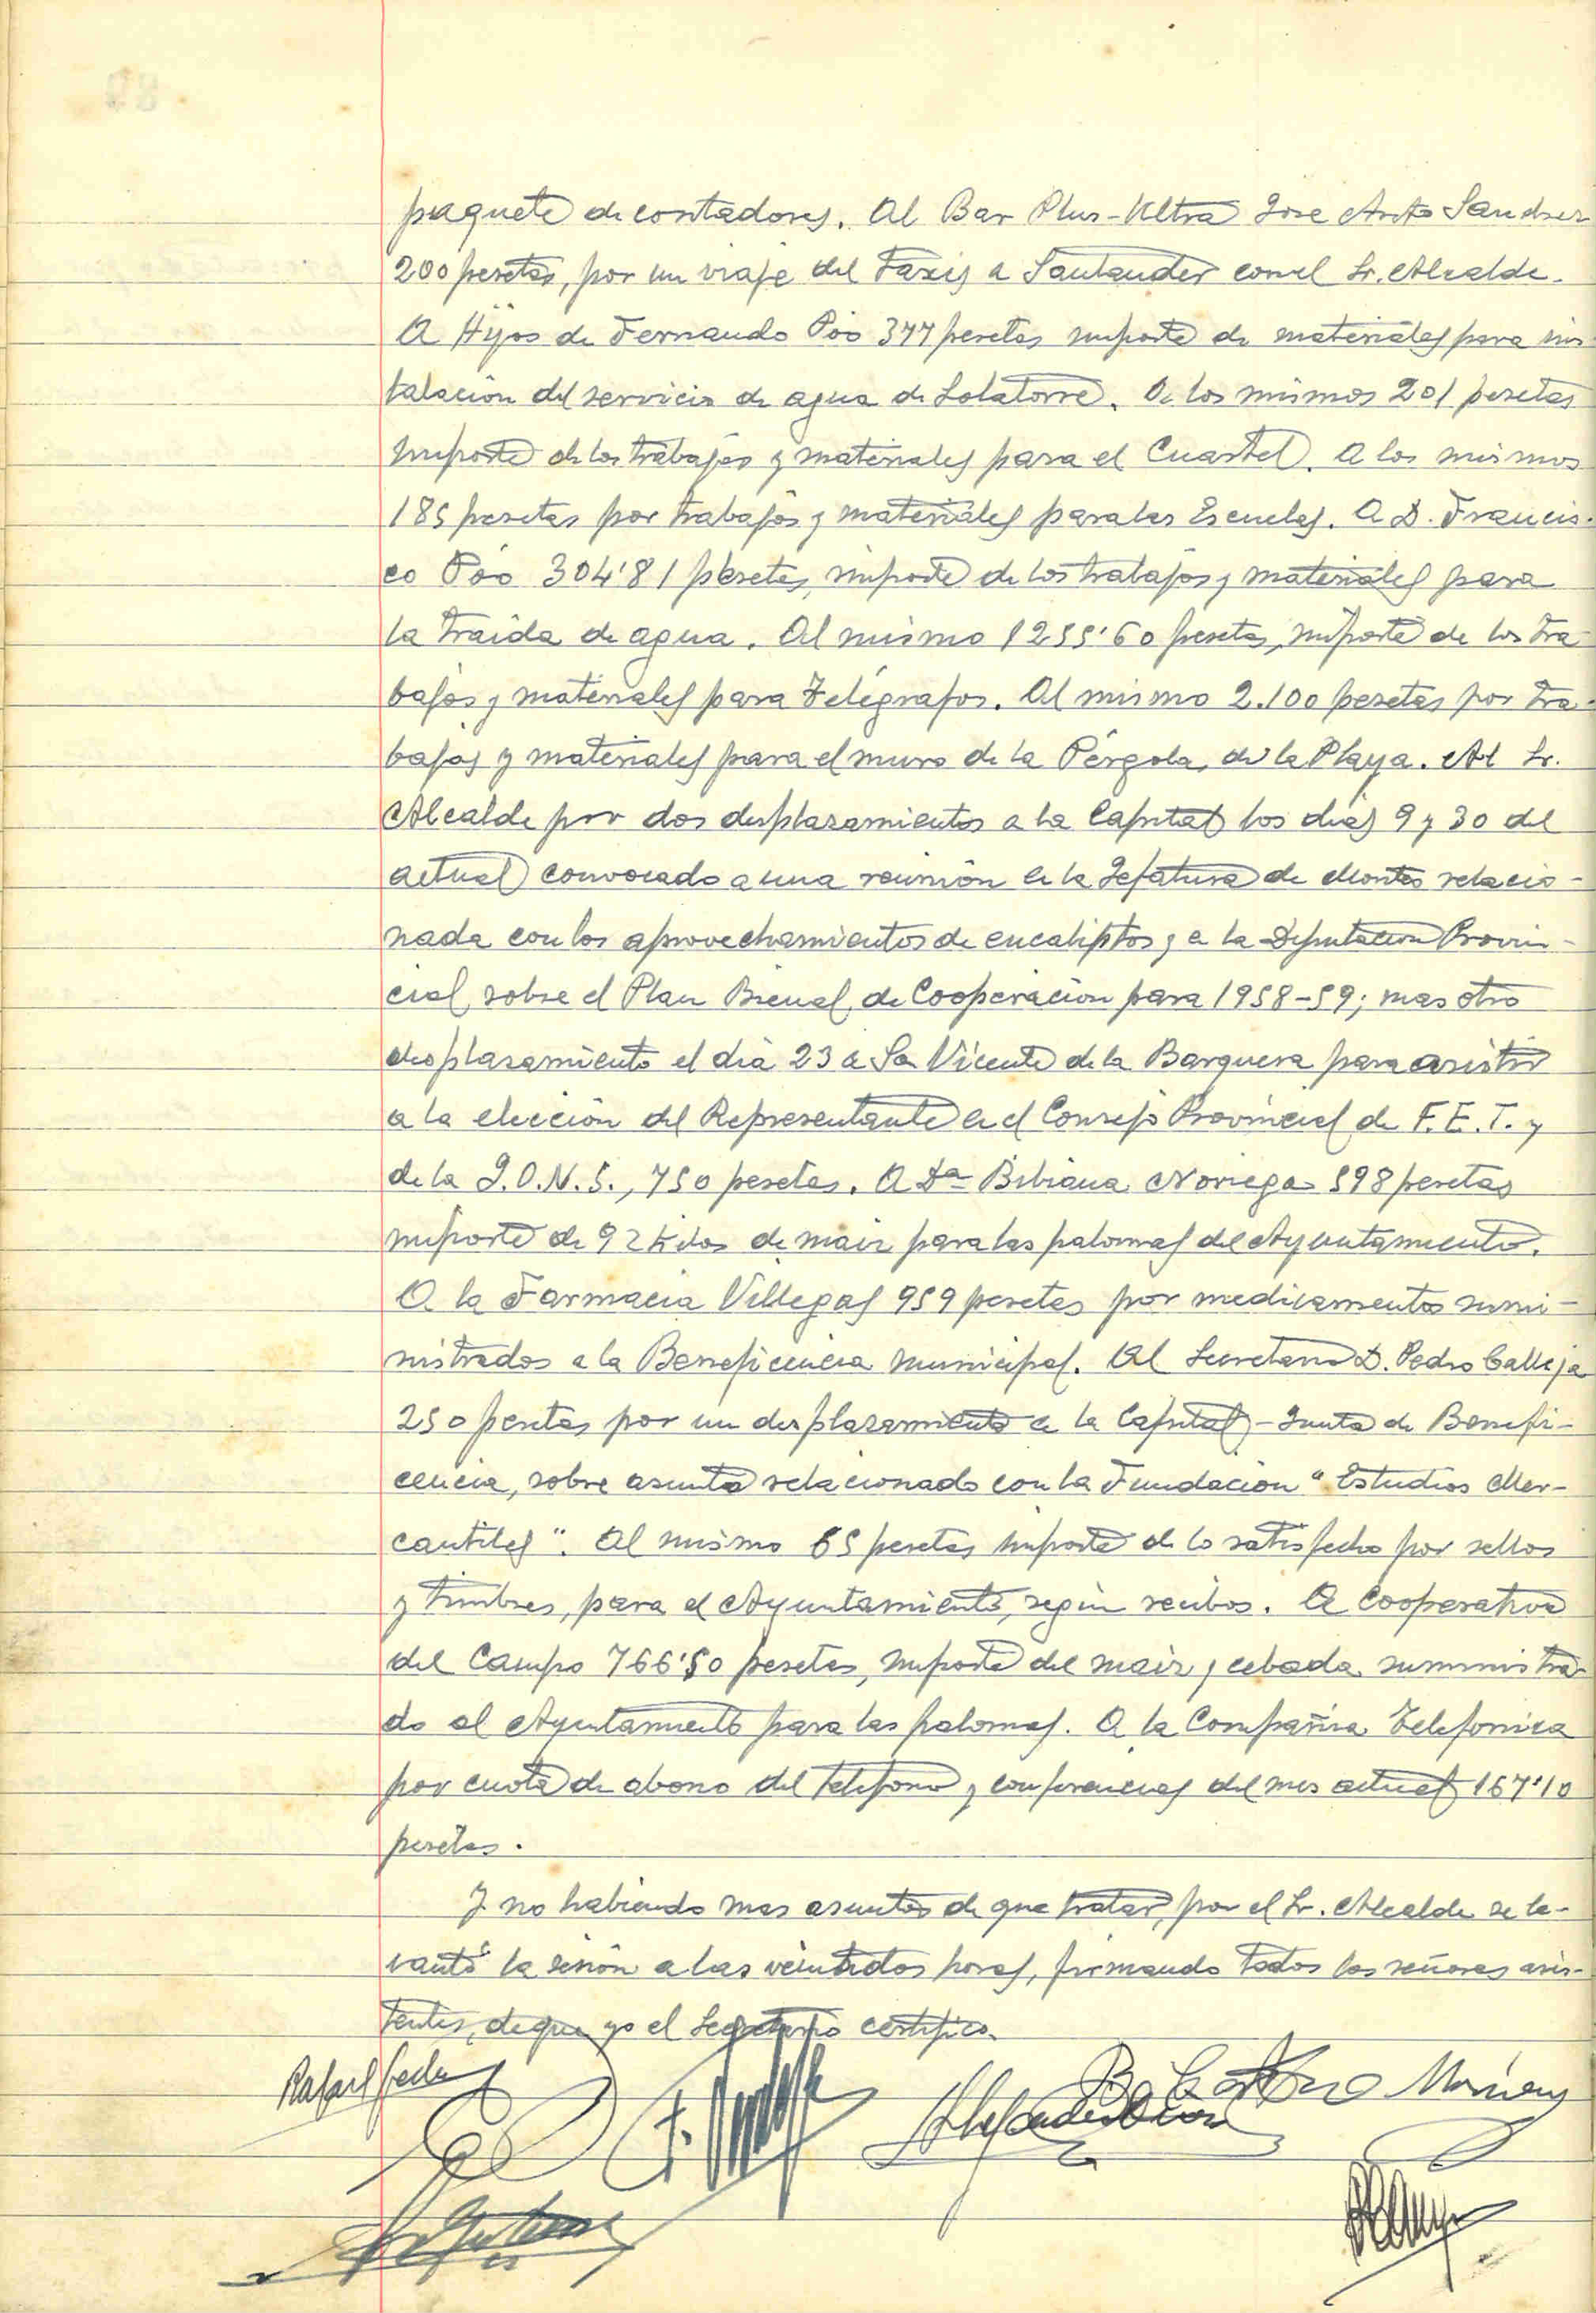 paquete de contadores. Al Bar Plus-Ultra José Anto Sanchez
200 pesetas, por un viaje del Taxis a Santander con el Sr. Alcalde.
A Hijos de Fernando Póo 377 pesetas importe de materiales para ins-
talación del servicio de agua de Solatorre. A los mismos 201 pesetas
importe de los trabajos y materiales para el Cuartel. A los mismos
185 pesetas por trabajos y materiales para las Escuelas. A D. Francis-
co Póo 304'81 pesetas, importe de los trabajos y materiales para
la traida de agua. Al mismo 1255'60 pesetas, importe de los tra-
bajos y materiales para Telégrafos. Al mismo 2.100 pesetas por tra-
bajos y materiales para el muro de la Pérgola, de la Playa. Al Sr.
Alcalde por dos desplazamientos a la Capital los días 9 y 30 del
actual convocado a una reunión en la Jefatura de Montes relacio-
nada con los aprovechamientos de eucaliptos y a la Diputación Provin-
cial, sobre el Plan Bienal, de Cooperación para 1958-59; mas otro
desplazamiento el día 23 a Sn Vicente de la Barquera para asistir
a la elección del Representante en el Consejo Provincial de F.E.T. y
de la J.O.N.S., 750 pesetas. A Dª Bibiana Noriega 598 pesetas
importe de 92 kilos de maiz para las palomas del Ayuntamiento.
A la Farmacia Villegas 959 pesetas por medicamentos sumi-
nistrados a la Beneficencia Municipal. Al Secretario D. Pedro Calleja
250 pesetas por un desplazamiento a la Capital - Junta de Benefi-
cencia, sobre asunto relacionado con la Fundación "Estudios Mer-
cantiles". Al mismo 65 pesetas importe de lo satisfecho por sellos
y timbres, para el Ayuntamiento, según recibos. A Cooperativa
del Campo 766'50 pesetas, importe del maiz y cebada suministra-
do al Ayuntamiento para las palomas. A la Compañia Telefonica
por cuota de abono del telefono y conferencias del mes actual 167'10
pesetas.
Y no habiendo mas asuntos de que tratar, por el Sr. Alcalde se le-
vantó la sesión a las veintidos horas, firmando todos los señores asis-
tentes, de que yo el Secretario certifico.
Rafael